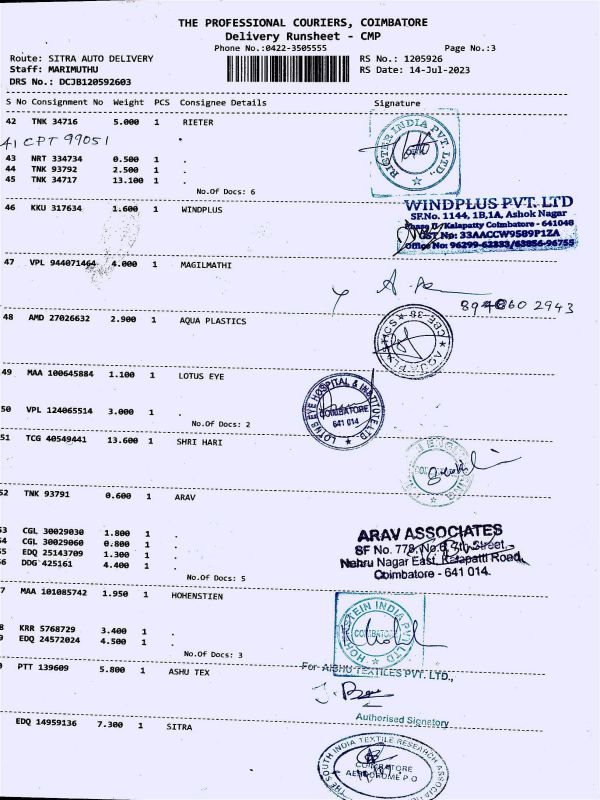 THE PROFESSIONAL COURIERS, COIMBATORE
Delivery Runsheet - CMP
Phone No.:0422-3505555 Page No.:3
Route: SITRA AUTO DELIVERY RS No.: 1205926
Staff: MARIMUTHU RS Date: 14-Jul-2023
DRS No.: DCJB120592603
S No Consignment No Weight PCS Consignee Details Signature
42 TNK 34716 5.000 1 RIETER
41 CPT 99051
43 NRT 334734 0.500 1 .
44 TNK 93792 2.500 1 .
45 TNK 34717 13.100 1 .
No.Of Docs: 6
RIETER INDIA PVT. LTD.,
46 KKU 317634 1.600 1 WINDPLUS
WINDPLUS PVT. LTD
SF.No. 1144, 1B,1A, Ashok Nagar
Phase II, Kalapatty Coimbatore - 641048
GST No: 33AACCW9589P1ZA
Office No: 96299-62333/63856-96755
47 VPL 944071464 4.000 1 MAGILMATHI
48 AMD 27026632 2.900 1 AQUA PLASTICS
AQUA PLASTICS CBE-35
49 MAA 100645884 1.100 1 LOTUS EYE
50 VPL 124065514 3.000 1 .
No.Of Docs: 2
LOTUS EYE HOSPITAL & INSTITUTE LTD.
COIMBATORE
641 014
51 TCG 40549441 13.600 1 SHRI HARI
52 TNK 93791 0.600 1 ARAV
53 CGL 30029030 1.800 1 .
54 CGL 30029060 0.800 1 .
EDQ 25143709 1.300 1 .
DDG 425161 4.400 1 .
No.Of Docs: 5
ARAV ASSOCIATES
SF No. 779, No.6, 4th Street,
Nehru Nagar East, Kalapatti Road,
Coimbatore - 641 014.
MAA 101085742 1.950 1 HOHENSTIEN
KRR 5768729 3.400 1 .
EDQ 24572024 4.500 1 .
No.Of Docs: 3
HOHENSTEIN INDIA PVT LTD
COIMBATORE
PTT 139609 5.800 1 ASHU TEX
For AISHU TEXTILES PVT. LTD.,
Authorised Signetory
EDQ 14959136 7.300 1 SITRA
THE SOUTH INDIA TEXTILE RESEARCH
COIMBATORE
AERODROME P.O